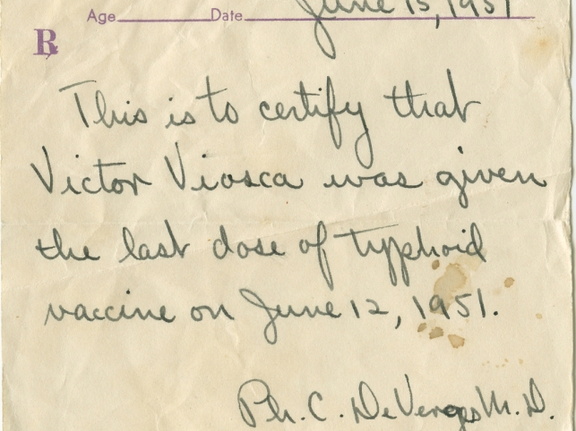 Age Date June 15, 1951
℞
This is to certify that
Victor Viosca was given
the last dose of typhoid
vaccine on June 12, 1951.
Ph. C. DeVerges M. D.